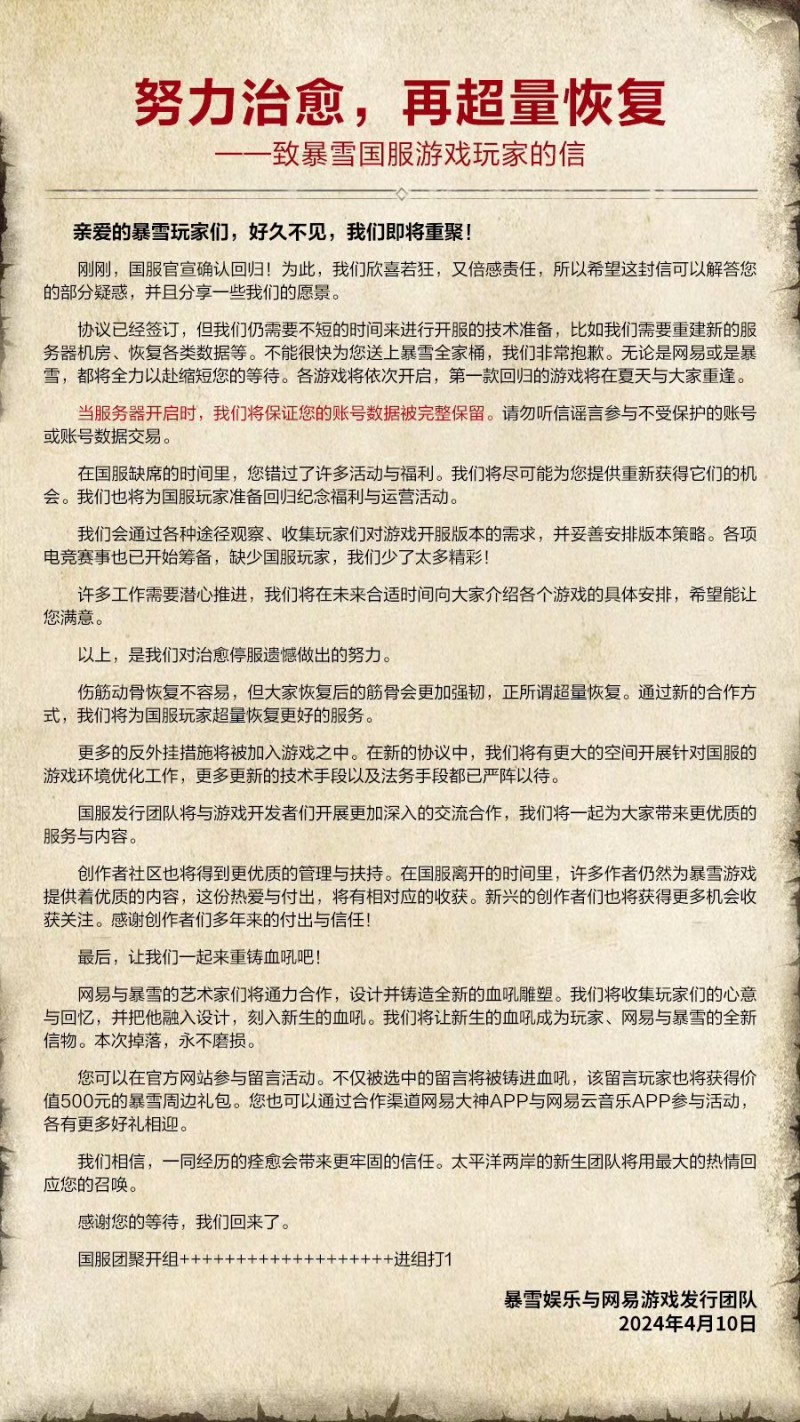 努力治愈，再超量恢复
——致暴雪国服游戏玩家的信
亲爱的暴雪玩家们，好久不见，我们即将重聚！
刚刚，国服官宣确认回归！为此，我们欣喜若狂，又倍感责任，所以希望这封信可以解答您
的部分疑惑，并且分享一些我们的愿景。
协议已经签订，但我们仍需要不短的时间来进行开服的技术准备，比如我们需要重建新的服
务器机房、恢复各类数据等。不能很快为您送上暴雪全家桶，我们非常抱歉。无论是网易或是暴
雪，都将全力以赴缩短您的等待。各游戏将依次开启，第一款回归的游戏将在夏天与大家重逢。
当服务器开启时，我们将保证您的账号数据被完整保留。请勿听信谣言参与不受保护的账号
或账号数据交易。
在国服缺席的时间里，您错过了许多活动与福利。我们将尽可能为您提供重新获得它们的机
会。我们也将为国服玩家准备回归纪念福利与运营活动。
我们会通过各种途径观察、收集玩家们对游戏开服版本的需求，并妥善安排版本策略。各项
电竞赛事也已开始筹备，缺少国服玩家，我们少了太多精彩！
许多工作需要潜心推进，我们将在未来合适时间向大家介绍各个游戏的具体安排，希望能让
您满意。
以上，是我们对治愈停服遗憾做出的努力。
伤筋动骨恢复不容易，但大家恢复后的筋骨会更加强韧，正所谓超量恢复。通过新的合作方
式，我们将为国服玩家超量恢复更好的服务。
更多的反外挂措施将被加入游戏之中。在新的协议中，我们将有更大的空间开展针对国服的
游戏环境优化工作，更多更新的技术手段以及法务手段都已严阵以待。
国服发行团队将与游戏开发者们开展更加深入的交流合作，我们将一起为大家带来更优质的
服务与内容。
创作者社区也将得到更优质的管理与扶持。在国服离开的时间里，许多作者仍然为暴雪游戏
提供着优质的内容，这份热爱与付出，将有相对应的收获。新兴的创作者们也将获得更多机会收
获关注。感谢创作者们多年来的付出与信任！
最后，让我们一起来重铸血吼吧！
网易与暴雪的艺术家们将通力合作，设计并铸造全新的血吼雕塑。我们将收集玩家们的心意
与回忆，并把他融入设计，刻入新生的血吼。我们将让新生的血吼成为玩家、网易与暴雪的全新
信物。本次掉落，永不磨损。
您可以在官方网站参与留言活动。不仅被选中的留言将被铸进血吼，该留言玩家也将获得价
值500元的暴雪周边礼包。您也可以通过合作渠道网易大神APP与网易云音乐APP参与活动，
各有更多好礼相迎。
我们相信，一同经历的痊愈会带来更牢固的信任。太平洋两岸的新生团队将用最大的热情回
应您的召唤。
感谢您的等待，我们回来了。
国服团聚开组+++++++++++++++++++进组打1
暴雪娱乐与网易游戏发行团队
2024年4月10日